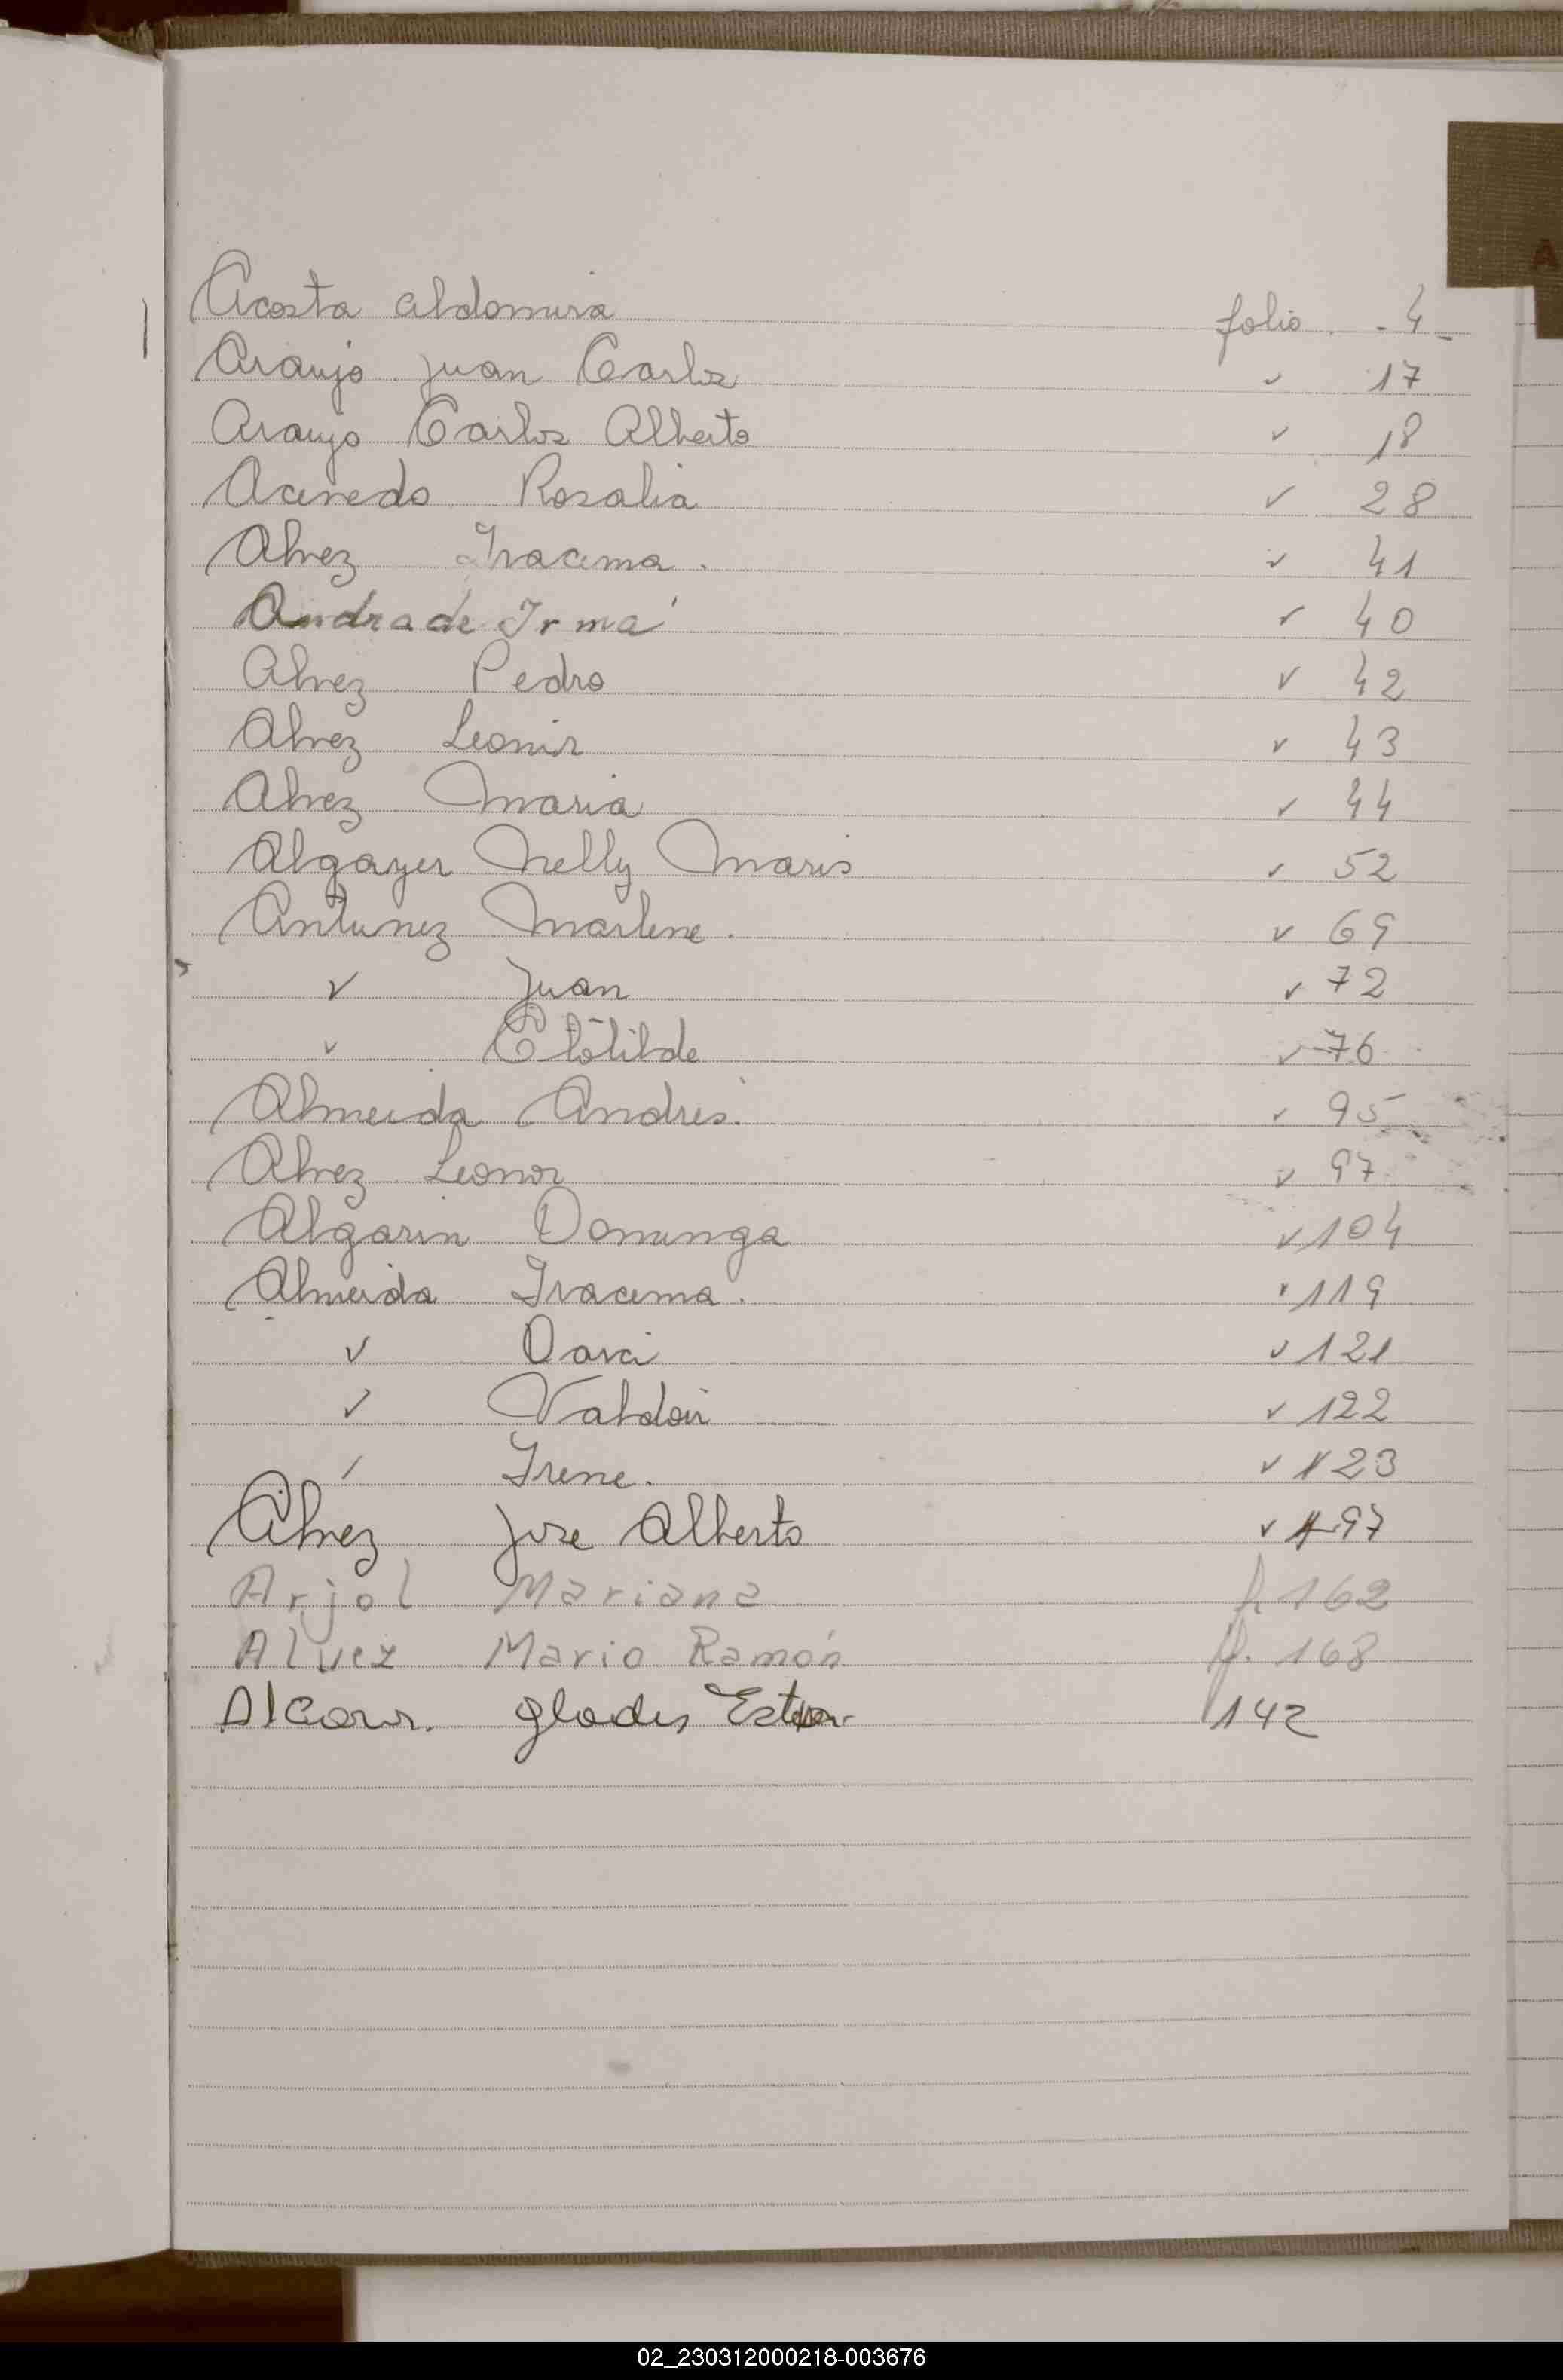 A
Acosta Aldomira folio - 4 -
Araujo Juan Carlos ✓ 17
Araujo Carlos Alberto ✓ 18
Acevedo Rosalia ✓ 28
Alvez Iracema. ✓ 41
Andrade Irma ✓ 40
Alvez Pedro ✓ 42
Alvez Leonir ✓ 43
Alvez Maria ✓ 44
Algayer Nelly Maris ✓ 52
Antunez Marlene. ✓ 69
✓ Juan ✓ 72
✓ Clotilde ✓ 76
Almeida Andres. ✓ 95
Alvez Leonor ✓ 97
Algarin Dominga ✓ 104
Almeida Iracema. ✓ 119
✓ Darci ✓ 121
✓ Valdoir ✓ 122
✓ Irene. ✓ 123
Alvez Jose Alberto ✓ 97
Arjol Mariana f. 162
Alvez Mario Ramón f. 168
Glades 142
02_230312000218-003676